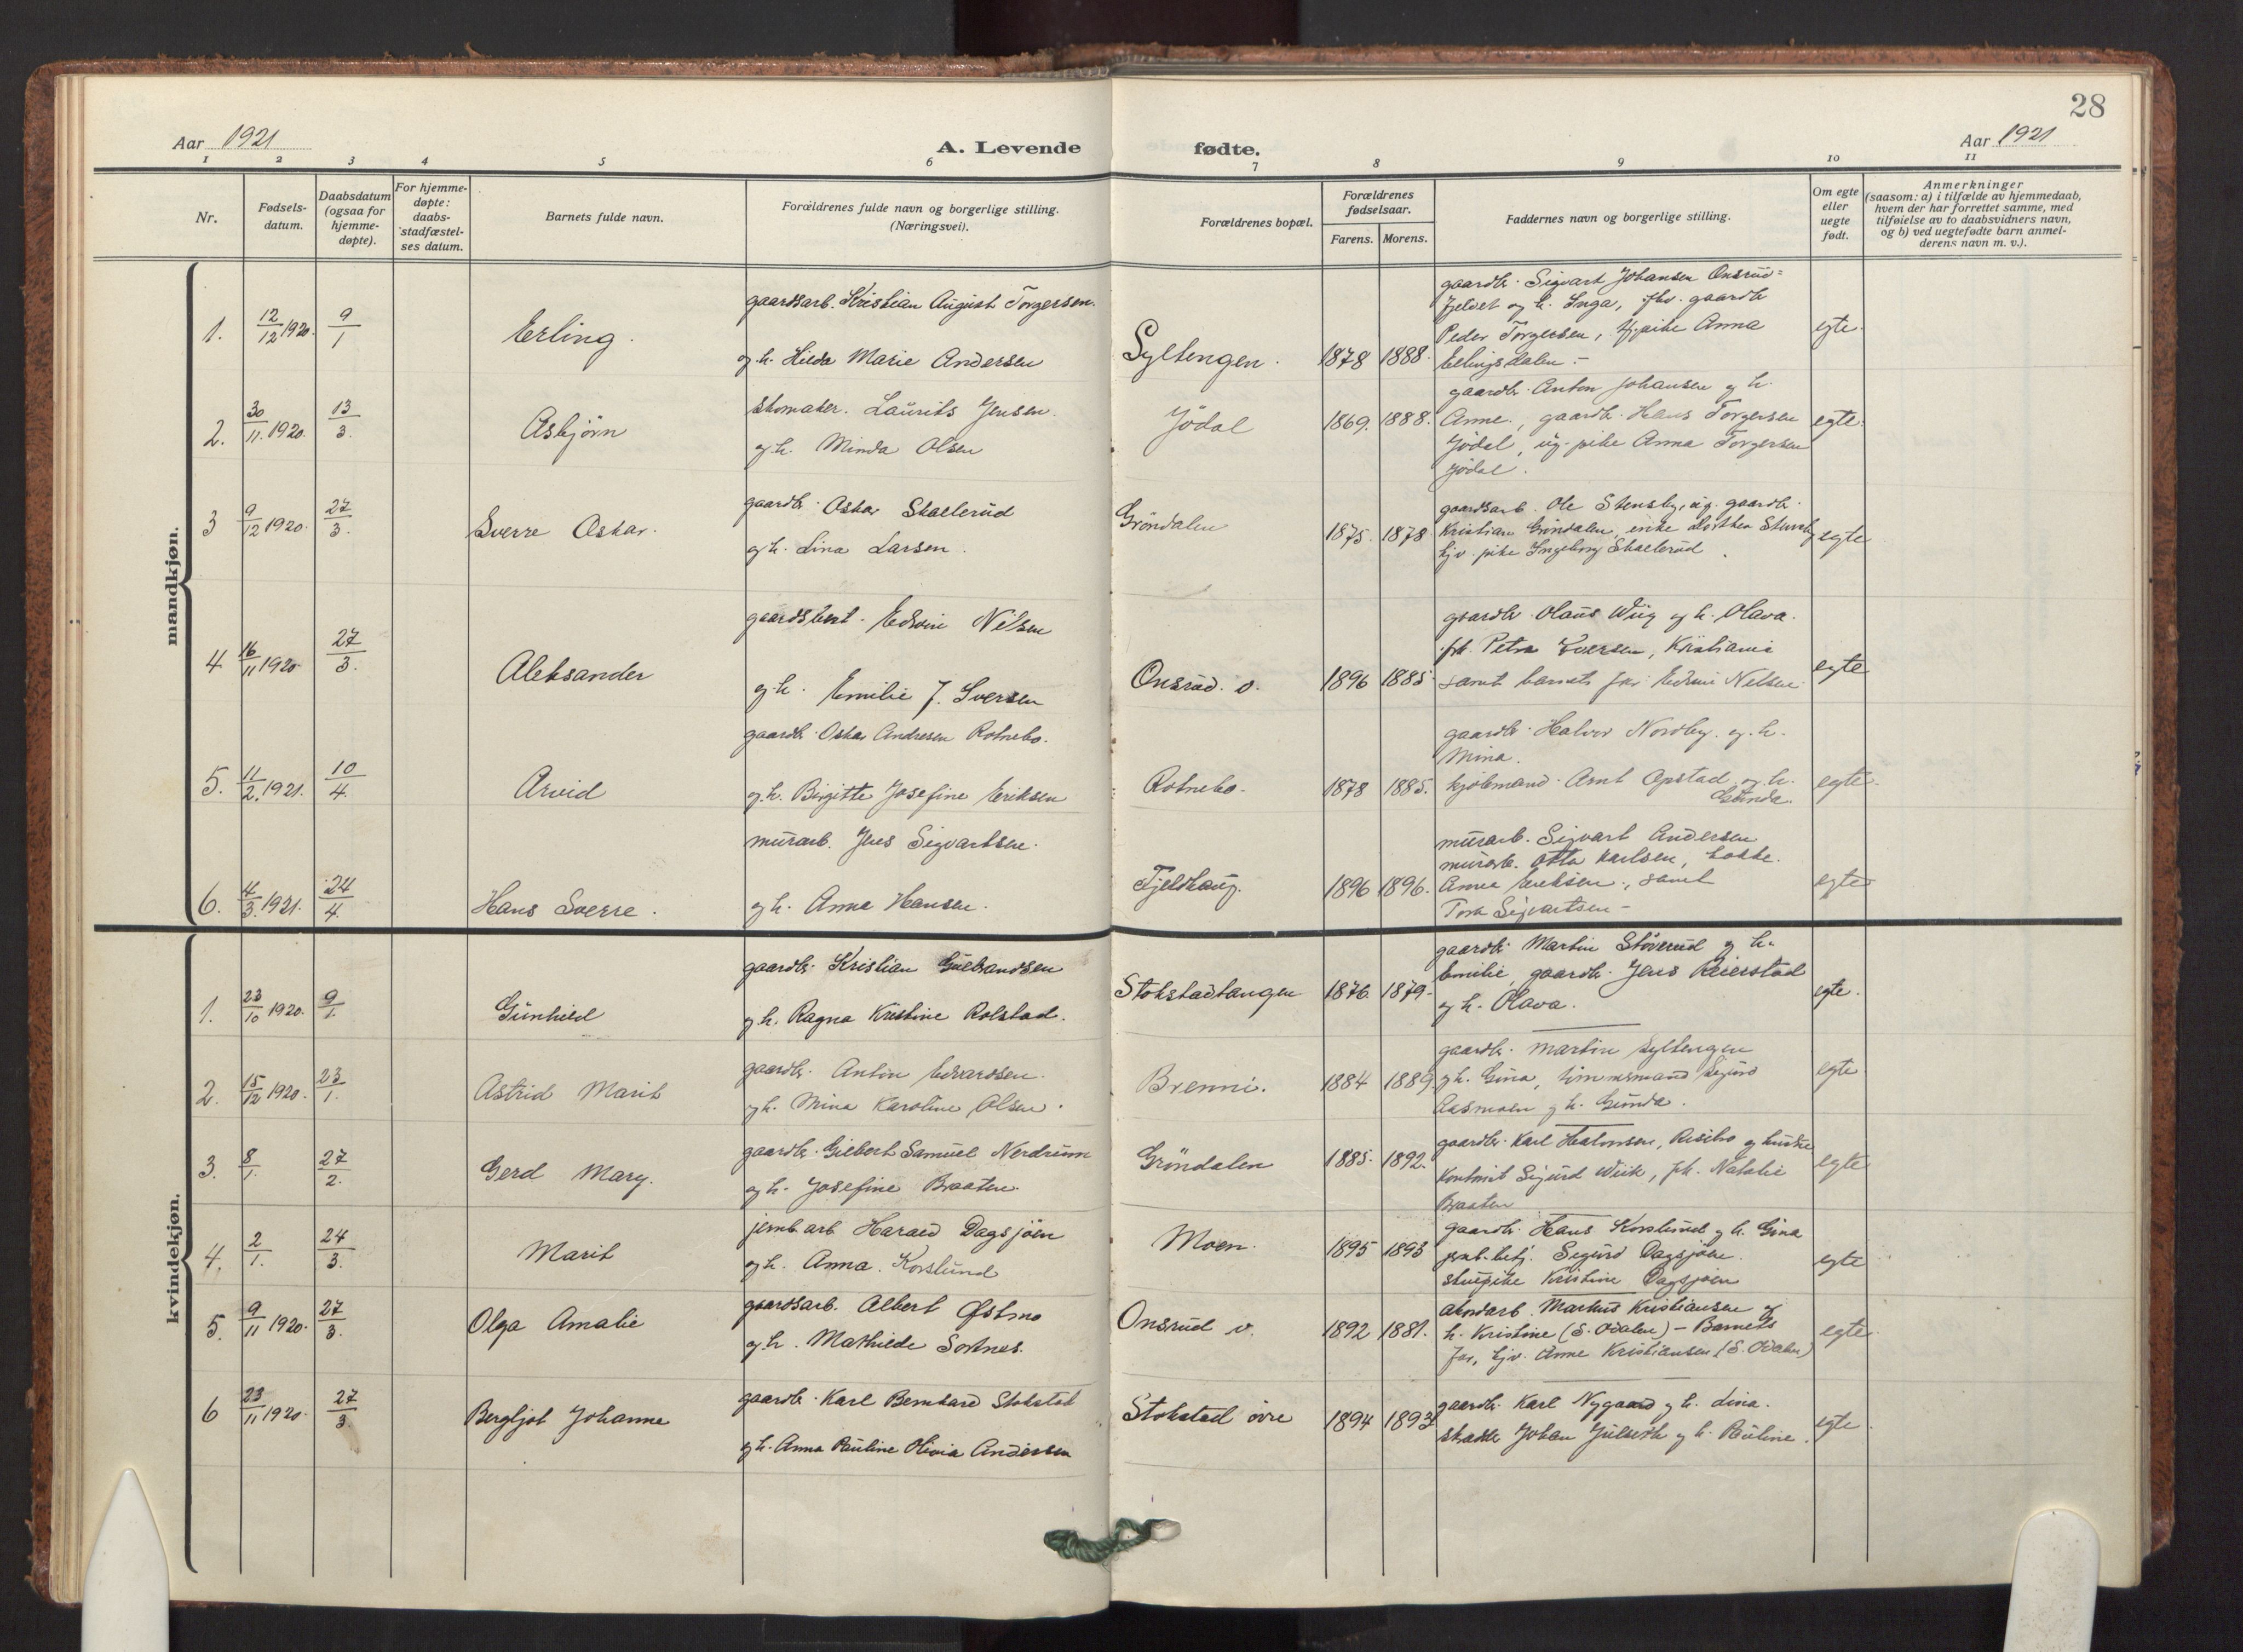 28
Aar 1921
A. Levende fødte.
Aar 1921
1 2 3 4 5 6 7 8 9 10 11
Nr.
Fødsels-
datum.
Daabsdatum
(ogsaa for
hjemme-
døpte).
For hjemme-
døpte:
daabs-
stadfæstel-
ses datum.
Barnets fulde navn.
Forældrenes fulde navn og borgerlige stilling.
(Næringsvei).
Forældrenes bopæl.
Forældrenes
fødselsaar.
Farens. Morens.
Faddernes navn og borgerlige stilling.
Om egte
eller
uegte
født.
Anmerkninger
(saasom: a) i tilfælde av hjemmedaab,
hvem der har forrettet samme, med
tilføielse av to daabsvidners navn,
og b) ved uegtefødte barn anmel-
derens navn m. v.).
mandkjøn.
1. 12/12 1920. 9/1 Erling.
gaardsarb. Kristian August Torgersen.
og h. Hilda Marie Andersen
Syltengen. 1878 1888.
gaardbr. Sigvart Johansen Onsrud=
fjeldet og h. Inga, gaardbr
Peder Torgersen, tj. pike Anna
egte.
2. 30/11. 1920. 13/3. Asbjørn
skomaker. Laurits Jensen.
og h. Minda Olsen
Jödal 1869. 1888.
gaardbr. Anton Johansen og h.
Anne, gaardbr. Hans Torgersen
Jödal, ug. pike Anna Torgersen
Jödal.
egte.
3 9/12 1920. 27/3. Sverre Oskar.
gaardbr. Oskar Skaelerud
og h. Lina Larsen.
Gröndalen 1875. 1878
gaardsarb. Ole Stensby, ug. gaardbr.
Kristian Gröndalen, enke Dorthea Stensby
tjv. pike Ingeborg Skaelerud.
egte
4 16/11 1920 27/3. Aleksander
gaardsbest. Edvin Nilsen
og h. Emilie J. Iversen
Onsrud. ö. 1896 1885
gaardbr. Olaus Wiig og h. Olava.
frk. Petra Iversen, Kristiania
samt barnets far Edvin Nilsen.
egte
5. 11/2. 1921. 10/4. Arvid
gaardbr. Oskar Andresen Rotnebo.
og h. Birgitte Josefine Eriksen
Rotnebo. 1878 1885.
gaardbr. Halvor Nordby. og h.
Mina.
kjöbmand. Arnt Opstad og h.
Gunda.
egte.
6. 4/3. 1921. 24/4. Hans Sverre.
murarb. Jens Sigvartsen.
og h. Anna Hansen.
Fjeldhaug. 1896 1896.
murarb. Sigvart Andersen
murarb. Otto Karlsen, Lokke.
Anna Eriksen, samt
Tora Sigvartsen
egte
kvindekjøn.
1. 23/10 1920. 9/1. Gunhild
gaardbr. Kristian Gulbrandsen
og h. Ragna Kristine Rolstad.
Stokstadtangen 1876. 1879.
gaardbr. Martin Stöverud og h.
Emilie, gaardbr. Jens Reierstad
og h. Olava.
egte.
2. 15/12 1920. 23/1. Astrid Marit
gaardbr. Anton Edvardsen.
og h. Mina Karoline Olsen.
Brenni. 1884 1889.
gaardbr. Martin Syltengen
og h. Gina, tömmermand Sigurd
Aasmoen og h. Gunda.
egte
3. 8/1. 27/2. Gerd Mary.
gaardbr. Gilbert Samuel Nerdrum
og h. Josefine Braaten.
Gröndalen 1885. 1892.
gaardbr. Karl Halvorsen, Risebro og hustru
Kontorist Sigurd Wiik, frk. Natalie
Braaten
egte
4. 2/1. 24/3. Marit
jernb. arb. Harald Dagsjöen
og h. Anna Korslund
Moen. 1895 1893
gaardbr. Hans Korslund og h. Gina
jernb. betj. Sigurd Dagsjöen.
stuepike Kristine Dagsjöen
egte
5. 9/11 1920. 27/3. Olga Amalie
gaardsarb. Albert Østmo
og h. Mathilde Sortnes.
Onsrud v. 1892 1881.
Markus Kristiansen og
h. Kristine (S. Odalen) – Barnets
far, tjv. Anne Kristiansen (S. Odalen)
egte.
6 23/11 1920. 27/3. Bergljot Johanne
gaardbr. Karl Bernhard Stokstad
og h. Anna Pauline Olivia Andersen
Stokstad övre 1894 1893
gaardbr. Karl Nygaard og h. Lina.
skrædder Johan Julseth og h. Pauline.
egte.